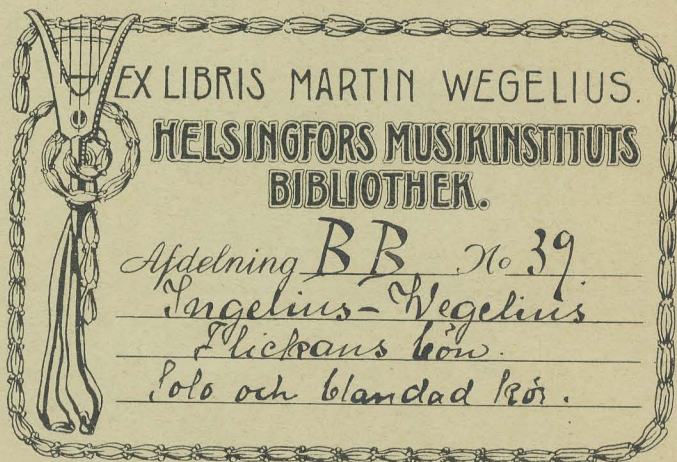 EX LIBRIS MARTIN WEGELIUS.
HELSINGFORS MUSIKINSTITUTS
BIBLIOTHEK.
Afdelning BB No 39
Ingelius-Wegelius
Flickans bön.
Solo och blandad kör.